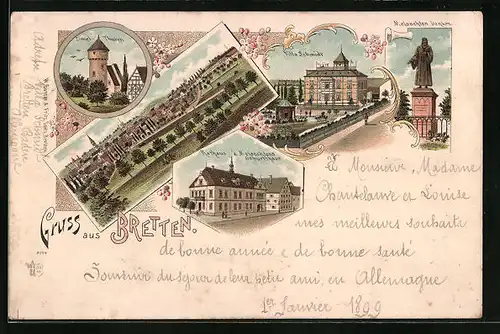 Simel Thurm
Villa Schmidt
Melanchton Denkm.
Rathaus u. Melanchtons
Geburtshaus
Gruss aus BRETTEN.
A Monsieur, Madame
Chantelauve et Louise
mes meilleurs souhaits
de bonne année & de bonne santé
Souvenir du séjour de leur petit ami, en Allemagne
1er Janvier 1899
Villa Schmidt
Bretten Baden